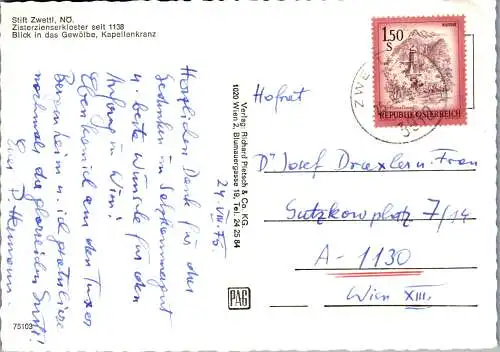 Stift Zwettl, NÖ.
Zisterzienserkloster seit 1138
Blick in das Gewölbe, Kapellenkranz
Herzlichen Dank für das
Gedenken im Salzkammergut
u. beste Wünsche für den
Anfang in Wien!
Ebenso bin ich aus den
heim u. ich gratuliere
nochmals
24. VIII. 75.
75103
Verlag: Richard Pietsch & Co. KG.
1020 Wien 2, Blumauergasse 19, Tel. 24 25 84
PAG
1.50
S
REPUBLIK ÖSTERREICH
ZWE
Hofrat
Dr Josef Draxler u. Frau
Gutzkowplatz 7/14
A-1130
Wien XIII.